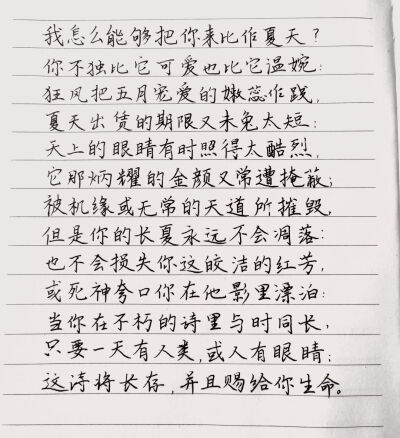 我怎么能够把你来比作夏天？
你不独比它可爱也比它温婉：
狂风把五月宠爱的嫩蕊作践，
夏天出赁的期限又未免太短：
天上的眼睛有时照得太酷烈，
它那炳耀的金颜又常遭掩蔽；
被机缘或无常的天道所摧毁，
但是你的长夏永远不会凋落：
也不会损失你这皎洁的红芳，
或死神夸口你在他影里漂泊：
当你在不朽的诗里与时同长，
只要一天有人类，或人有眼睛；
这诗将长存，并且赐给你生命。